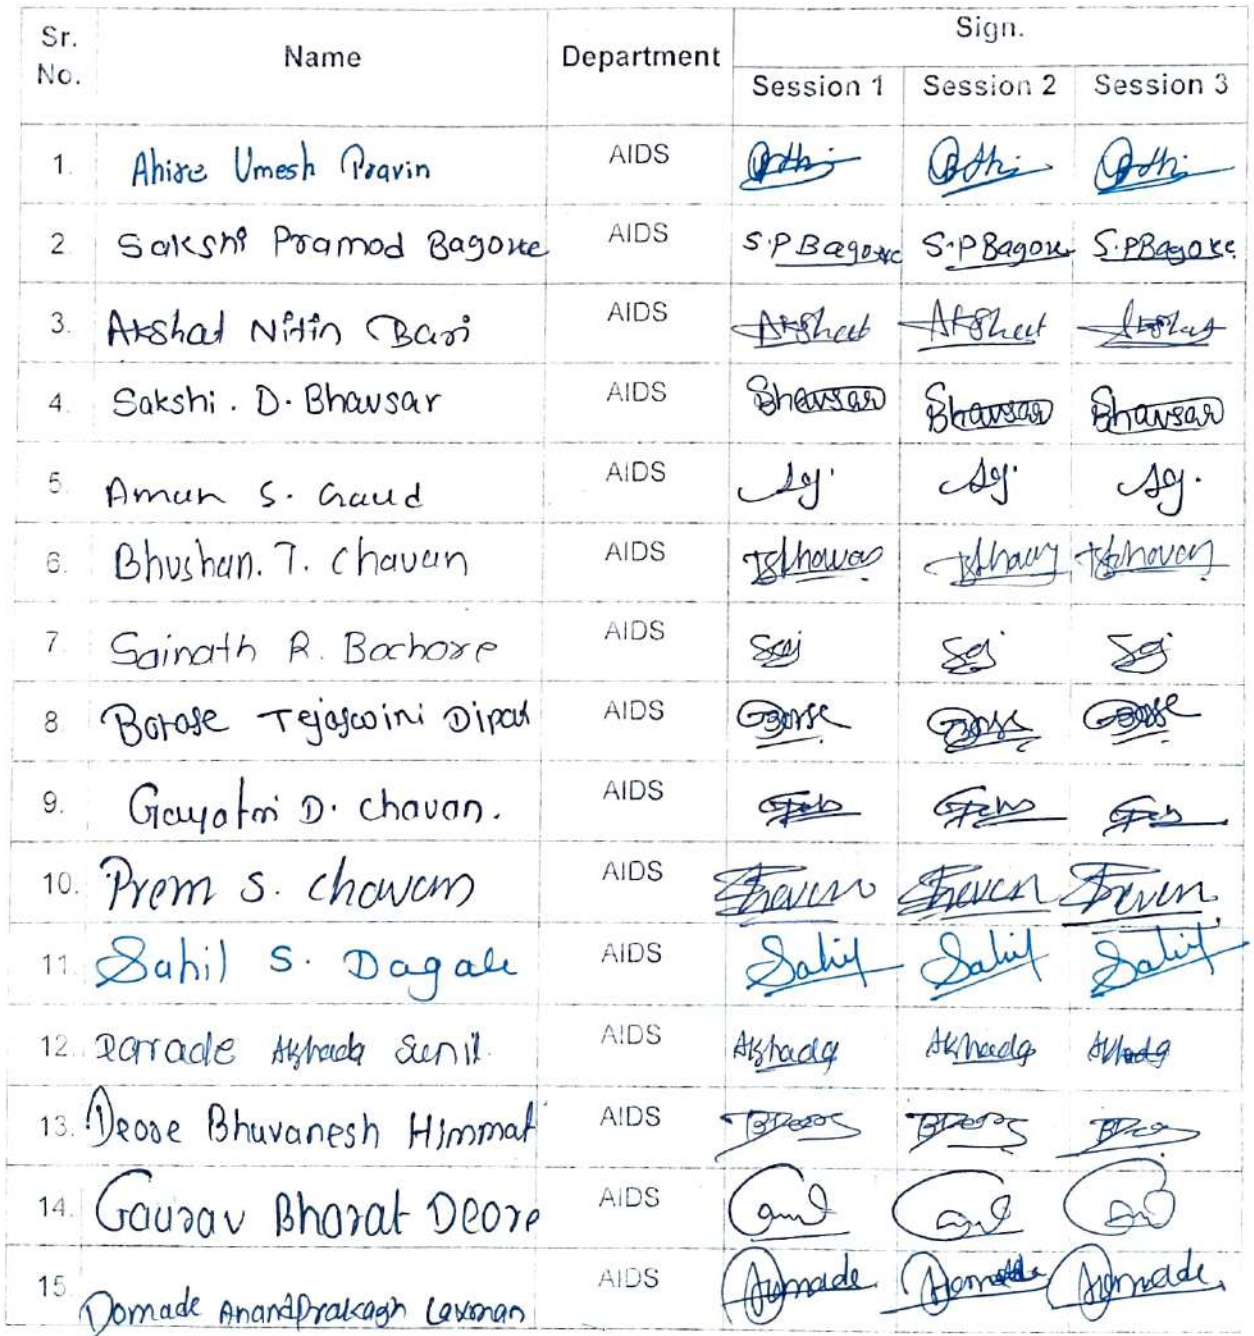 Sr. No. Name Department Sign.
Session 1 Session 2 Session 3
1. Ahire Umesh Pravin AIDS
2. Sakshi Pramod Bagore AIDS S.P Bagore S.P Bagore S.P Bagore
3. Akshat Nitin Bari AIDS Akshat Akshat Akshat
4. Sakshi. D. Bhavsar AIDS Bhavsar Bhavsar Bhavsar
5. Aman S. Gaud AIDS
6. Bhushan. T. Chavan AIDS
7. Sainath R. Bochore AIDS
8 Borase Tejaswini Dipak AIDS
9. Gayatri D. Chavan. AIDS
10. Prem S. Chavan AIDS
11. Sahil S. Dagale AIDS Sahil Sahil Sahil
12. Darade Akshada Sunil. AIDS Akshada Akshada
13. Deore Bhuvanesh Himmat AIDS BDeore
14. Gaurav Bharat Deore AIDS
15. Domade Anandprakash Laxman AIDS